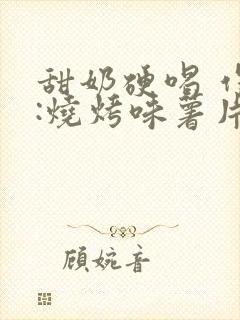 甜奶硬唱
:燒烤味薯片
顾婉音